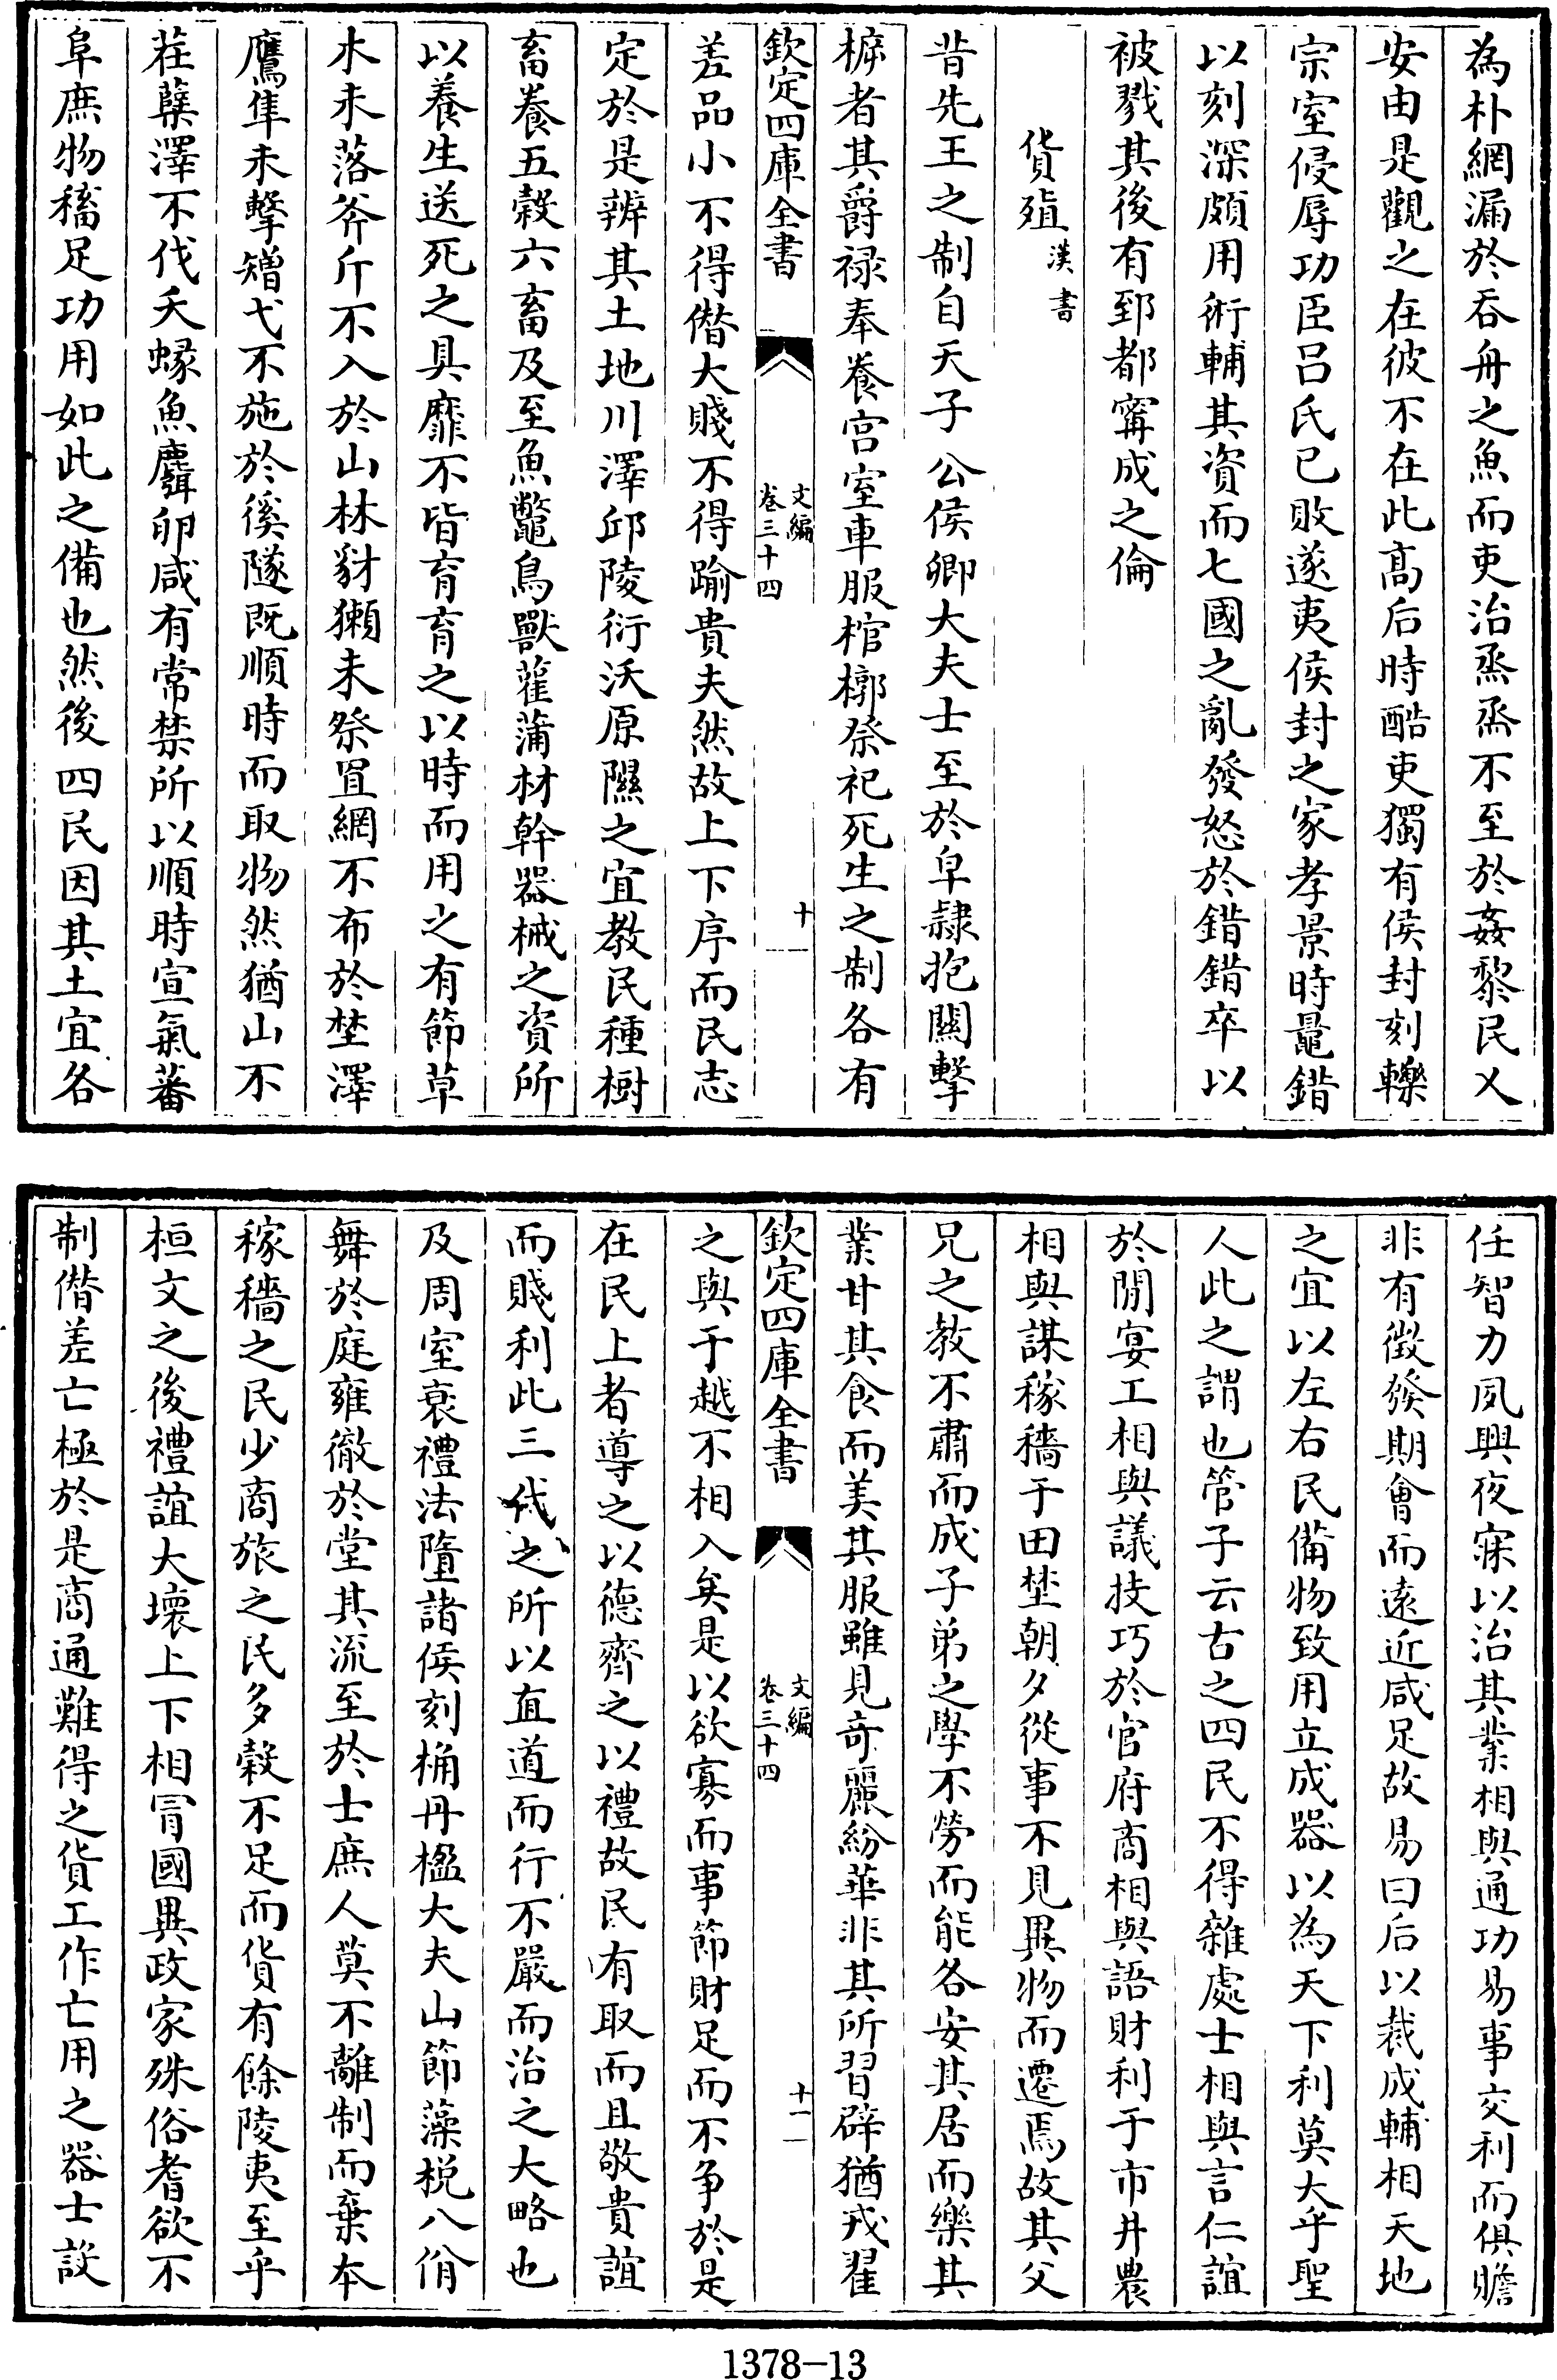 為朴網漏於吞舟之魚而吏治烝烝不至於姦黎民乂
安由是觀之在彼不在此髙后時酷吏獨有侯封刻轢
宗室侵辱功臣吕氏已敗遂夷侯封之家孝景時鼂錯
以刻深頗用術輔其資而七國之亂發怒於錯錯卒以
被戮其後有郅都甯成之倫
貨殖漢書
昔先王之制自天子公侯卿大夫士至於皁隷抱關擊
㭿者其爵禄奉養宫室車服棺槨祭祀死生之制各有
欽定四庫全書
文編
卷三十四
十一
差品小不得僭大賤不得踰貴夫然故上下序而民志
定於是辨其土地川澤邱陵衍沃原隰之宜教民種樹
畜養五穀六畜及至魚鼈鳥獸雚蒲材幹器械之資所
以養生送死之具靡不皆育育之以時而用之有節草
木未落斧斤不入於山林豺獺未祭罝網不布於埜澤
鷹隼未擊矰弋不施於徯隧既順時而取物然猶山不
茬蘖澤不伐夭蝝魚麛卵咸有常禁所以順時宣氣蕃
阜庶物稸足功用如此之備也然後四民因其土宜各
任智力夙興夜寐以治其業相與通功易事交利而俱贍
非有徴發期會而逺近咸足故易曰后以裁成輔相天地
之宜以左右民備物致用立成器以為天下利莫大乎聖
人此之謂也管子云古之四民不得雜處士相與言仁誼
於閒宴工相與議技巧於官府商相與語財利于市井農
相與謀稼穡于田埜朝夕從事不見異物而遷焉故其父
兄之教不肅而成子弟之學不勞而能各安其居而樂其
業甘其食而美其服雖見奇麗紛華非其所習辟猶戎翟
欽定四庫全書
文編
卷三十四
十一
之與于越不相入矣是以欲寡而事節財足而不争於是
在民上者導之以德齊之以禮故民有取而且敬貴誼
而賤利此三代之所以直道而行不嚴而治之大略也
及周室衰禮法墮諸侯刻桷丹楹大夫山節藻梲八佾
舞於庭雍徹於堂其流至於士庶人莫不離制而棄本
稼穡之民少商旅之民多穀不足而貨有餘陵夷至乎
桓文之後禮誼大壞上下相冒國異政家殊俗耆欲不
制僭差亡極於是商通難得之貨工作亡用之器士設
1378-13